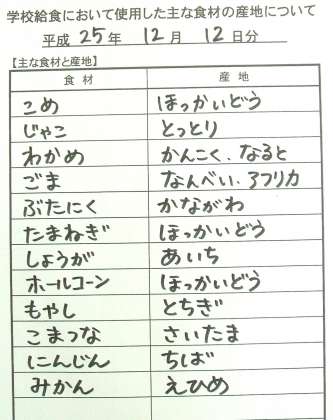 学校給食において使用した主な食材の産地について
平成 25 年 12 月 12 日分
【主な食材と産地】
食材 産地
こめ ほっかいどう
じゃこ とっとり
わかめ かんこく、なると
ごま なんべい、アフリカ
ぶたにく かながわ
たまねぎ ほっかいどう
しょうが あいち
ホールコーン ほっかいどう
もやし とちぎ
こまつな さいたま
にんじん ちば
みかん えひめ